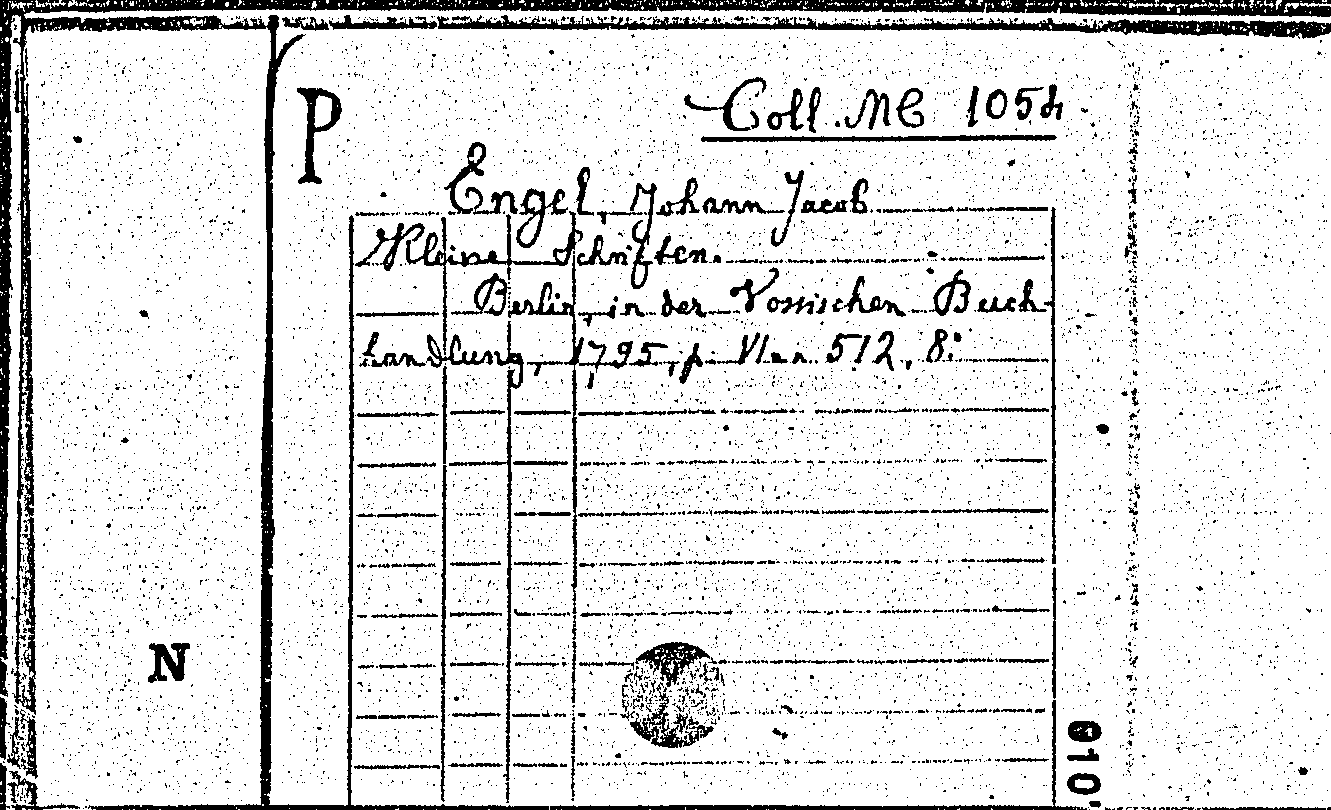 P
Coll. MC 1054
Engel, Johann Jacob
Kleine Schriften.
Berlin, in der Vossischen Buch-
handlung, 1795, p. 512, 8.°
N
010